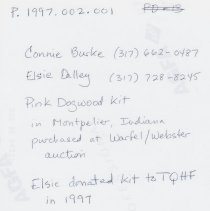 P. 1997.002.001
Connie Burke (317) 662-0487
Elsie Dalley (317) 728-8245
Pink Dogwood Kit
in Montpelier, Indiana
purchased at Warfel/Webster
auction
Elsie donated kit to TQHF
in 1997